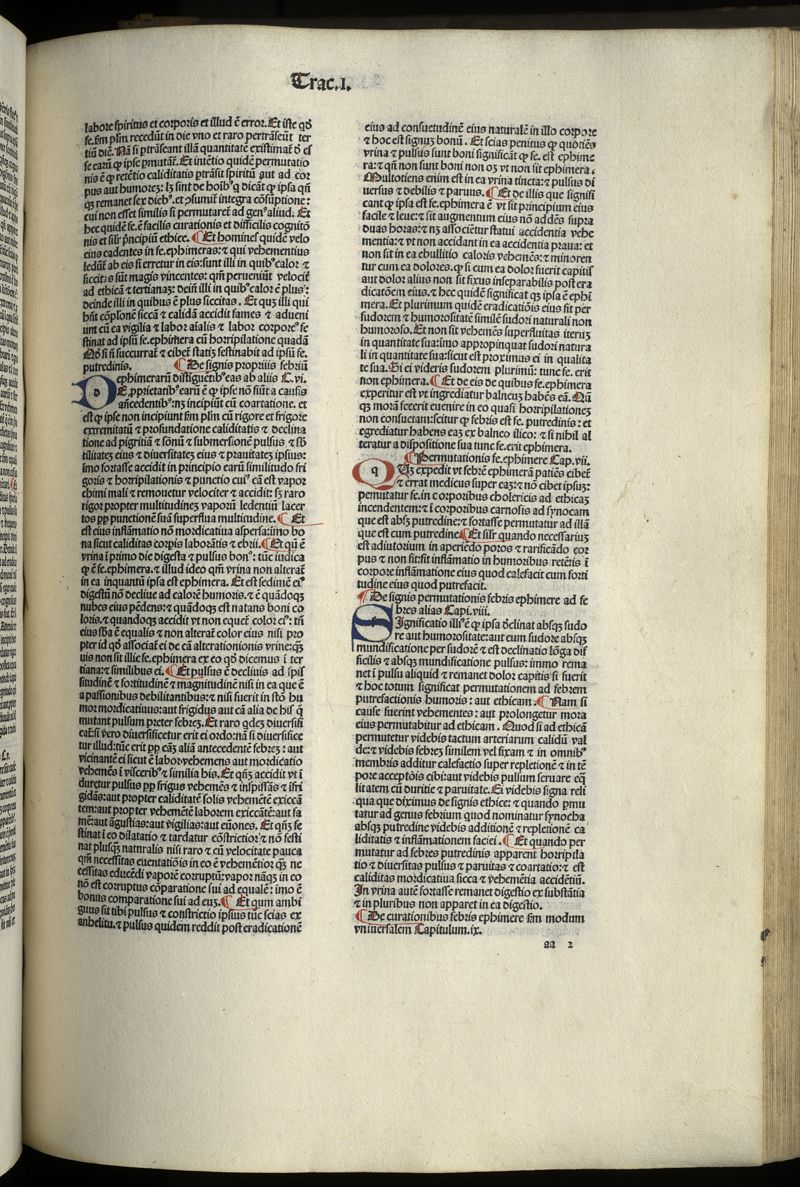 Trac.I.
labore spiritus et corporis et illud ē error. Et iste qđ
se. sm plm recedūt in die vno et raro pertrāseūt ter
tiū diē. Nā si ptrāseant illā quantitatē existimať đ eſ
se earū ꝙ ipse pmutāt. Et inuētio quidē permutatio
nis ē ꝙ retētio caliditatis ptrāsit spiritū aut ad cor
pus aut humores: ...
qꝫ remanet sex dieb⁹. et psumit integra cōsūptione:
cui non esset similis si permutaret ad gen⁹ aliud. Et
hec quidē se. ē facilis curationis et difficilis cognitō
nis et silr prīcipiū ethice. ¶ Et homines quidē velo
cius cadentes in se. ephimeras: ⁊ qui vehementius
ledūt ab eis si erretur in eis: sunt illi in quib⁹ calor ⁊
siccitas sūt magis vincentes: qm̄ perueniūt velociť
ad ethicā ⁊ tertianaꝫ: dein̄ illi in quib⁹ calor ē plus:
deinde illi in quibus ē plus siccitas. Et quꝫ illi qui
hn̄t cōplōnē siccā ⁊ calidā accidit fames ⁊ adueni
unt cū ea vigilia ⁊ labor aīalis ⁊ labor corpore⁹ fe
stinat ad ipsū se. ephimera cū horripilatione quadā
Nō si n̄ succurrať ⁊ cibeť statiꝫ festinabit ad ipsū se.
putredinis. ¶ De signis propriis febriū
ephimerarū distīguētib⁹ eas ab aliis C.vi.
DE proprietatib⁹ earū ē ꝙ ipse nō siūt a causis
an̄cedentib⁹: nꝫ incipiūt cū coartatione. et
est ꝙ ipse non incipiunt sm plm cū rigore et frigore
extremitatū ⁊ profundatione caliditatis ⁊ declina
tione ad pigritiā ⁊ sōnū ⁊ submersionē pulsus ⁊ sb̄
tilitates eius ⁊ diuersitates eius ⁊ prauitates ipsius:
imo fortasse accidit in principio earū similitudo fri
goris ⁊ horripilationis ⁊ punctio cui⁹ cā est vapor
chimi mali ⁊ remouetur velociter ⁊ accidit: sꝫ raro
rigor propter multitudineꝫ vaporū ledentiū lacer
tos pp punctionē suā superflua multitudine. ¶ Et
est eius inflāmatio nō mordicatiua aspera: imo bo
na sicut caliditas corpis laborātis ⁊ ebrii. ¶ Et qn̄ ē
vrina ī primo die digesta ⁊ pulsus bon⁹: tūc iudica
ꝙ ē se. ephimera. ⁊ illud ideo qm̄ vrina non alterať
in ea inquantū ipsa est ephimera. Et est sedimē ei⁹
digestū nō decliue ad calorē humoris. ⁊ ē quādoqꝫ
nubes eius pēdens: ⁊ quādoqꝫ est natans boni co
loris. ⁊ quandoqꝫ accidit vt non equet color ei⁹: tn̄
eius sb̄a ē equalis ⁊ non alteraʼ color eius nisi pro
pter id qđ associať ei de cā alterationionis vrine: qꝫ
uis non sit illic se. ephimera ex eo qđ dicemus ī ter
tiana: ⁊ similibus ei. ¶ Et pulsus ē decliuis ad spis
situdinē ⁊ fortitudinē ⁊ magnitudinē nisi in ea que ē
a passionibus debilitantibus: ⁊ nisi fuerit in stō hu
mor mordicatiuus: aut frigidus aut cā alia de his ꝙ
mutant pulsum preter febreꝫ. Et raro qdeꝫ diuersifi
caťsi vero diuersificetur erit ei ordo: nā si diuersifice
tur illud: tūc erit pp eāꝫ aliā antecedentē febreꝫ: aut
vicinantē ei sicut ē labor vehemens aut mordicatio
vehemēs ī visceribʼ ⁊ similia his. Et qn̄qꝫ accidit vt ī
duretur pulsus pp frigus vehemēs ⁊ inspissās ⁊ ifri
gidās: aut propter caliditatē solis vehemētē exiccā
tem: aut propter vehemētē laborem exiccātē: aut fa
mē: aut āgustias: aut vigilias: aut euōnes. Et qn̄qꝫ fe
stinat ī eo dilatatio ⁊ tardatur cōstrictio: ⁊ nō festi
nat plusqꝫ natralis nisi raro ⁊ cū velocitate pauca
qm̄ necessitas euentatiōis in eo ē vehemētior qꝫ ne
cessitas educēdi vaporē corruptū: vapor nāqꝫ in eo
nō est corruptus cōparatione sui ad equalē: imo ē
bonus comparatione sui ad euꝫ. ¶ Et qum ambi
guus sit tibi pulsus ⁊ constrictio ipsius tūc scias ex
anhelitu. ⁊ pulsus quidem reddit post eradicationē
eius ad consuetudinē eius naturalē in illo corpore
⁊ hoc est signuꝫ bonū. Et scias penitus ꝙ quotiēs
vrina ⁊ pulsus sunt boni significāt ꝙ se. est ephime
ra: ⁊ qn̄ non sunt boni non oꝫ vt non sit ephimera.
Multotiens enim est in ea vrina tincta: ⁊ pulsus di
uersus ⁊ debilis ⁊ paruus. ¶ Et de illis que signifi
cant ꝙ ipsa est se. ephimera ē vt sit principium eius
facile ⁊ leue: ⁊ sit augmentum eius nō addēs supra
duas horas: ⁊ nꝫ associētur statui accidentia vehe
mentia: ⁊ vt non accidant in ea accidentia praua: et
non sit in ea ebullitio caloris vehemēs: ⁊ minoren
tur cum ea dolores. ꝙ si cum ea dolor fuerit capitis
aut dolor alius non sit fixus inseparabilis post era
dicatōem eius. ⁊ hec quidē significat qꝫ ipsa ē ephi
mera. Et plurimum quidē eradicatiōis eius fit per
sudorem ⁊ humorositatē similē sudori naturali non
humoroso. Et non fit vehemēs superfluitas iteruꝫ
in quantitate sua: imo appropinquat sudori natura
li in quantitate sua: sicut est proximus ei in qualita
te sua. Et ei videris sudorem plurimū: tunc se. erit
non ephimera. ¶ Et de eis de quibus se. ephimera
experitur est vt ingrediatur balneuꝫ habēs eā. Nū
qꝫ morā fecerit euenire in eo quasi horripilationeꝫ
non consuetam: scitur ꝙ febris est se. putredinis: et
egrediatur habens eaꝫ ex balneo ilico: ⁊ si nihil al
teratur a dispositione sua tunc se. erit ephimera.
¶ Permutationis se. ephimere Cap.vii.
QUꝫ expedit vt febrē ephimerā patiēs cibet̄
⁊ errat medicus super eaꝫ: ⁊ nō cibet ipsuꝫ:
pemutatur se. in corporibus cholericis ad ethicaꝫ
incendentem: ⁊ ī corporibus carnosis ad synocam
que est absqꝫ putredine: ⁊ fortasse permutatur ad illā
que est cum putredine. ¶ Et silr quando necessariuꝫ
est adiutorium in aperiēdo poros ⁊ rarificādo cor
pus ⁊ non fit: fit inflāmatio in humoribus retētis ī
corpore inflāmatione eius quod calefacit cum forti
tudine eius quod putrefacit.
¶ De signis permutationis febris ephimere ad fe
bres alias Capi.viii.
SIgnificatio illi⁹ ē ꝙ ipsa declinat absqꝫ sudo
re aut humorositate: aut cum sudore absqꝫ
mundificatione per sudorē ⁊ est declinatio lōga dif
ficilis ⁊ absqꝫ mundificatione pulsus: immo rema
net ī pulsu aliquid ⁊ remanet dolor capitis si fuerit
⁊ hoc totum significat permutationem ad febrem
putrefactionis humoris: aut ethicam. ¶ Nam si
cause fuerint vehementes: aut prolongetur mora
eius permutabitur ad ethicam. Quod si ad ethicā
permutetur videbis tactum arteriarum calidū val
de: ⁊ videbis febreꝫ similem vel fixam ⁊ in omnib⁹
membris additur calefactio super repletionē ⁊ in tē
pore acceptōis cibi: aut videbis pulsum seruare eq̄
litatem cū duritie ⁊ paruitate. Et videbis signa reli
qua que diximus de signis ethice: ⁊ quando pmu
tatur ad genus febrium quod nominatur synocha
absqꝫ putredine videbis additionē ⁊ repletionē ca
liditatis ⁊ inflāmationem faciei. ¶ Et quando per
mutatur ad febres putredinis apparent horripila
tio ⁊ diuersitas pulsus ⁊ paruitas ⁊ coartatio: ⁊ est
caliditas mordicatiua sicca ⁊ vehemētia accidētiū.
In vrina autē fortasse remanet digestio ex substātia
⁊ in pluribus non apparet in ea digestio.
¶ De curationibus febris ephimere sm modum
vniuersalem Capitulum.ix.
aa 2